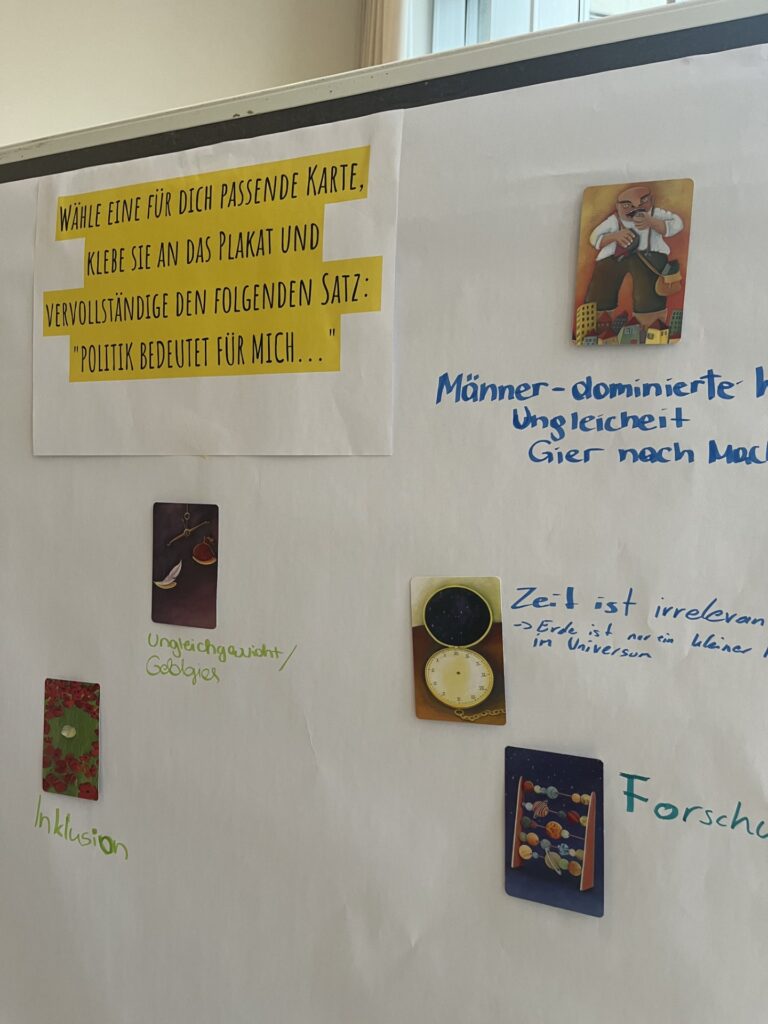 WÄHLE EINE FÜR DICH PASSENDE KARTE,
KLEBE SIE AN DAS PLAKAT UND
VERVOLLSTÄNDIGE DEN FOLGENDEN SATZ:
"POLITIK BEDEUTET FÜR MICH..."
Männer-dominierte
Ungleicheit
Gier nach Mac
Ungleichgewicht/
Geldgier
Zeit ist irrelevan
-> Erde ist nur ein kleiner
in Universum
Inklusion
Forschu